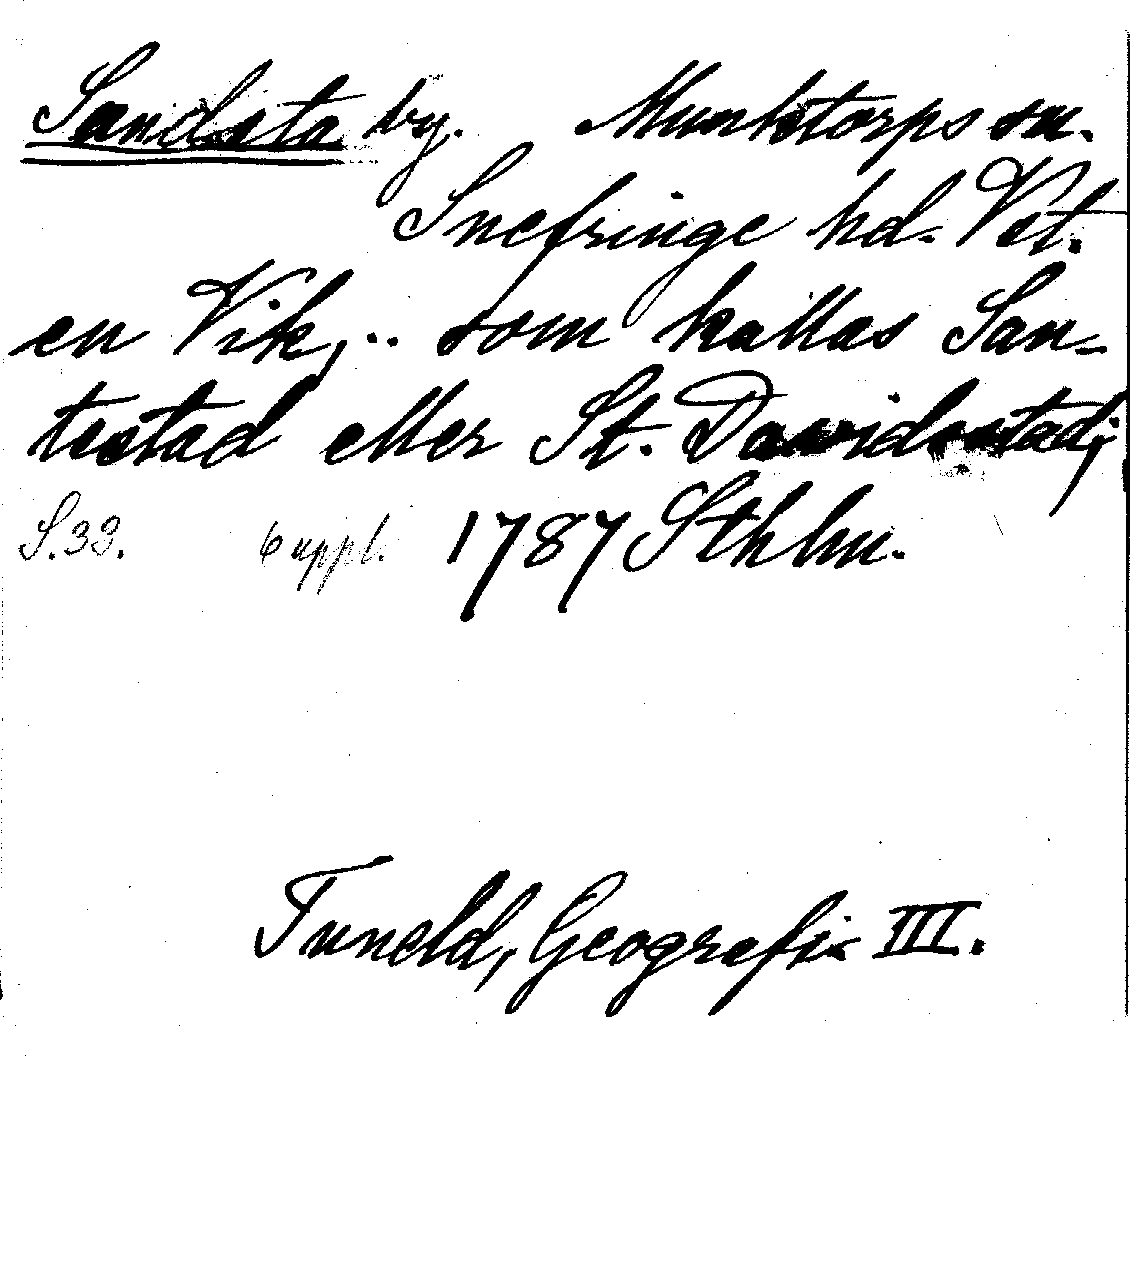 Sandsta by. Munktorps sn.
Snefringe hd. Vstl.
en Vik, .. som kallas San-
testad eller St. Davidsstad;
S. 39. 6 uppl. 1787 Sthlm.
Tuneld, Geografi III.